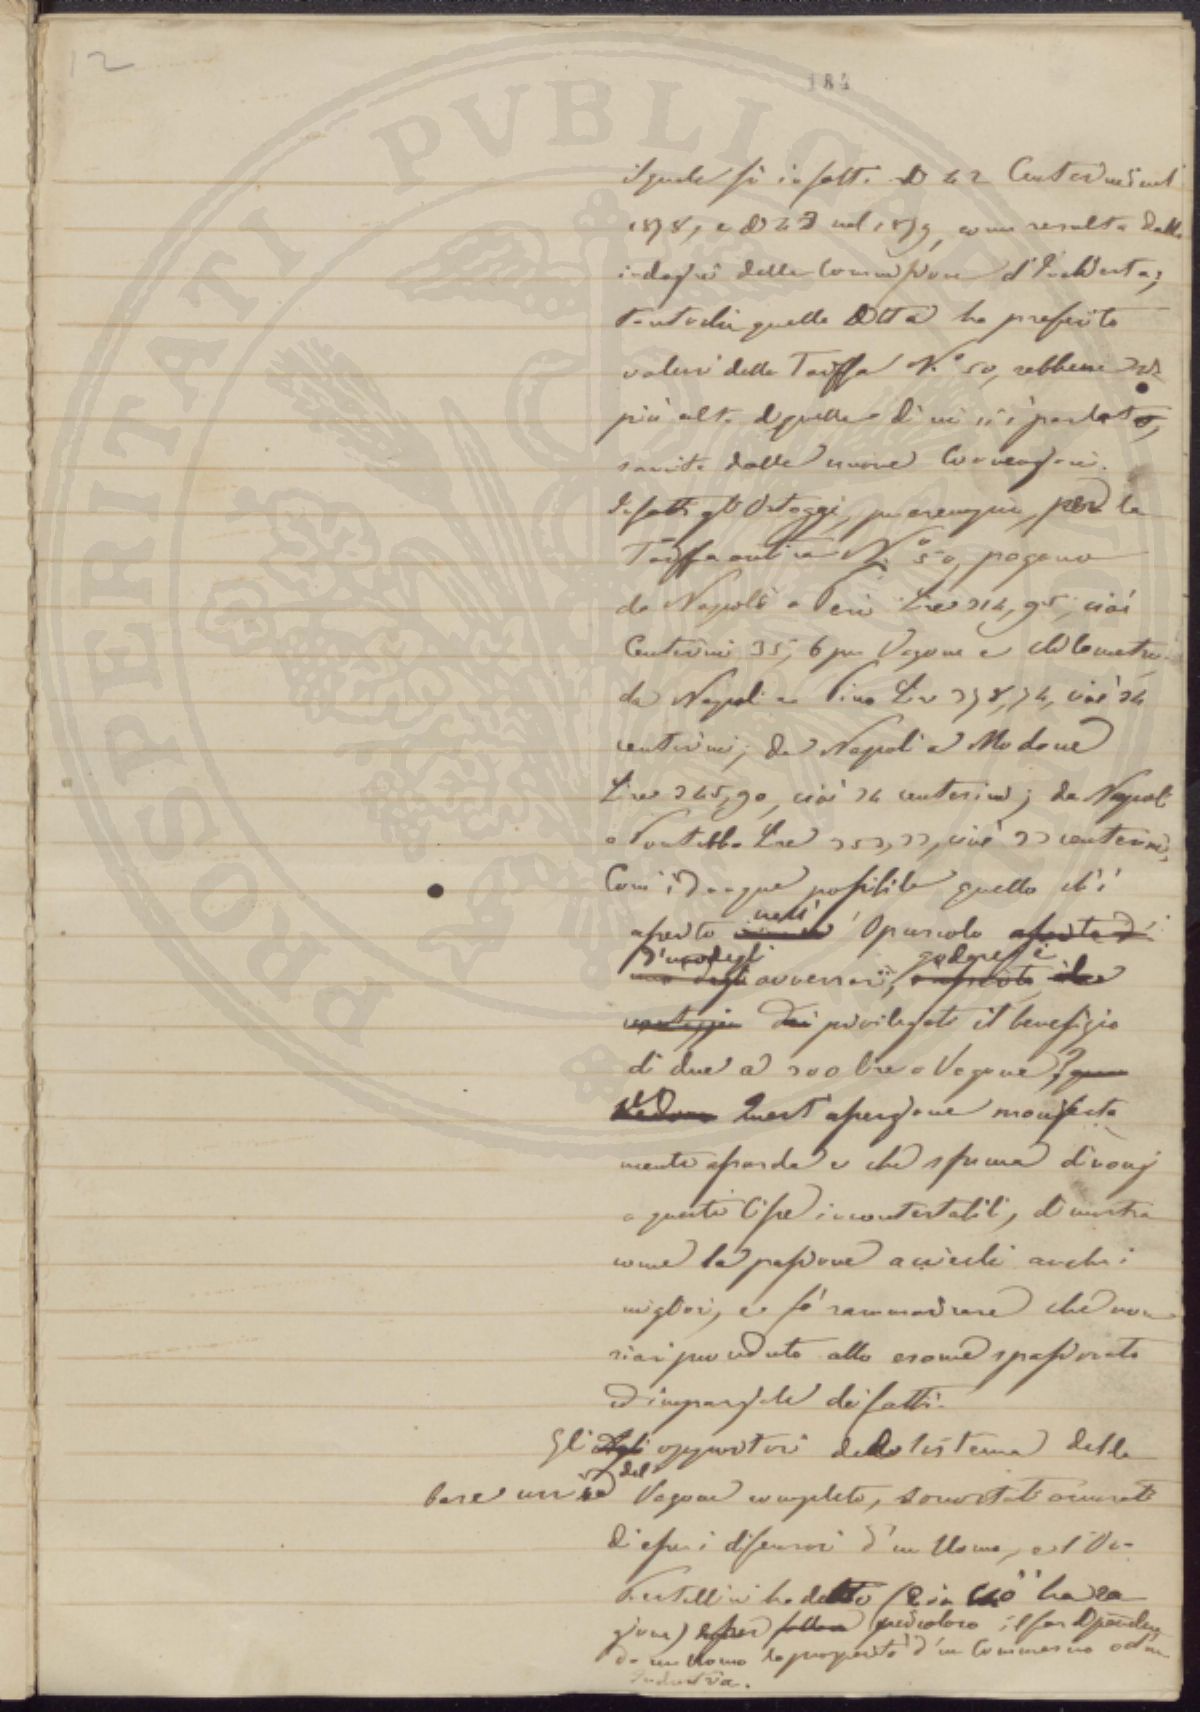 12
184
il quale fu infatti di 42 Centesimi nel
1878, e di 43 nel 1879, come resulta dalle
indagini della Commissione d'Inchiesta;
tantochè quella Ditta ha preferito
valersi della Tariffa N.° 50, sebbene
più alta di quella di cui si è parlato,
sancita dalle nuove Convenzioni.
Infatti gli Ortaggi, per esempio, per la
Tariffa antica N.° 50, pagano
da Napoli a Peri Lire 314,95, cioè
Centesimi 35,6 per Vagone e chilometro
da Napoli a Pino Lire 378,74, cioè 34
centesimi; da Napoli a Modane
Lire 345,90, cioè 34 centesimi; da Napoli
a Pontebba Lire 353,33, cioè 33 centesimi.
Com'è dunque possibile quello ch'è
asserito nell' Opuscolo
d'uno degli avversarii, godere i
privilegiati il benefizio
di due a 300 lire a Vagone?
Quest'asserzione manifesta
mente assurda e che sfuma dinanzi
a queste cifre incontestabili, dimostra
come la passione acciechi anche i
migliori, e fa rammaricare che non
siasi proceduto allo esame spassionato
ed imparziale dei fatti.
Gli oppositori del sistema della
base unica del Vagone completo, sono stati accusati
di essere i difensori d'un Uomo, e l'On.
Pestellini ha detto (e in ciò ha ra
gione) ridicolo il far dipendere
da un Uomo la prosperità d'un Commercio o d'un
Industria.
PROSPERITATI PVBLICAE